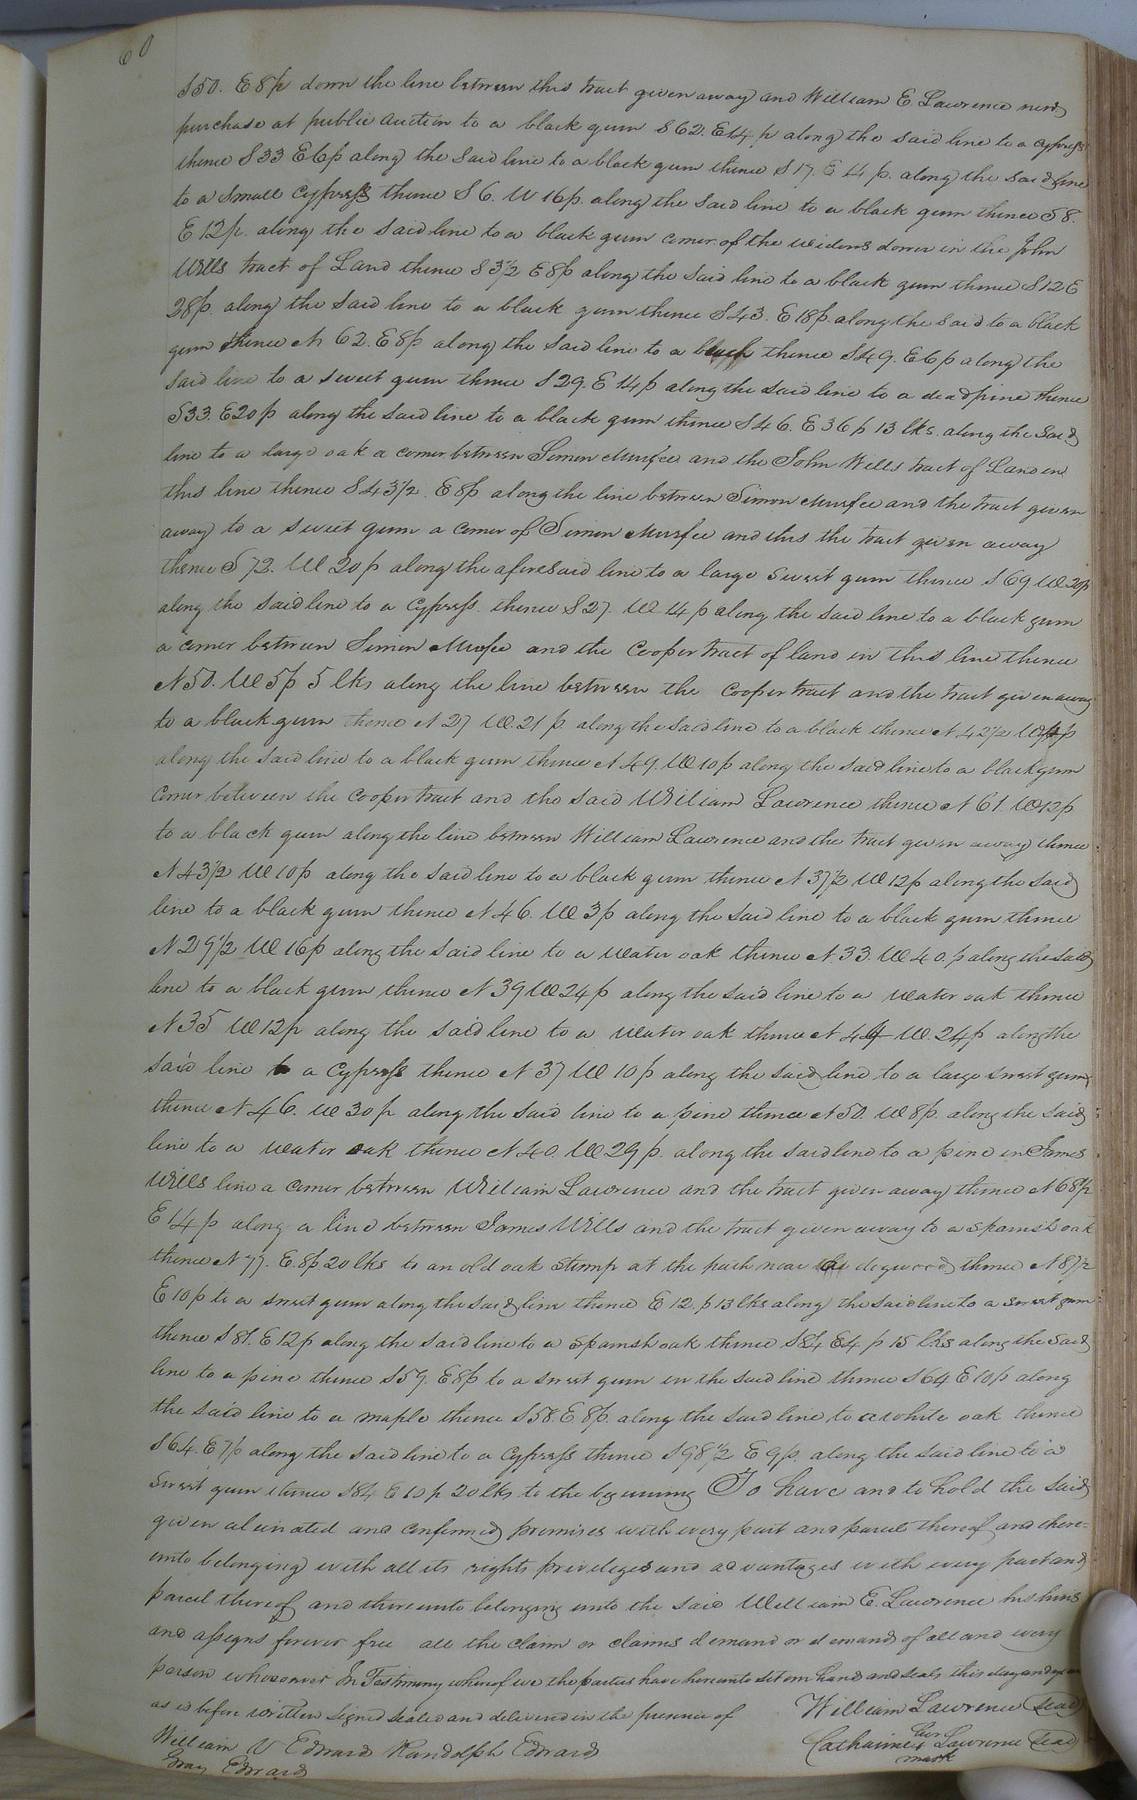 60
S50. E8p down the line between this tract given away and William E Lawrence new
purchase at public auction to a black gum S62. E14 p along the said line to a cypress
thence S33 E6p along the said line to a black gum thence S17. E 4 p. along the said line
to a small Cypress thence S6. W 16p. along the said line to a black gum thence S8.
E 12p. along the said line to a black gum corner of the widows dower in the John
Wills tract of Land thence S3½ E8p along the said line to a black gum thence S12E
28p. along the said line to a black gum thence S43. E18p. along the said to a black
gum thence N 62. E8p along the said line to a thence S49. E6p along the
said line to a sweet gum thence S29. E 14p along the said line to a dead pine thence
S33. E20p along the said line to a black gum thence S46. E36p 13 lks. along the said
line to a large oak a corner between Simon Murfee and the John Wills tract of Land in
this line thence S43½. E8p along the line between Simon Murfee and the tract given
away to a sweet gum a corner of Simon Murfee and this the tract given away
thence S73. W 20p along the aforesaid line to a large sweet gum thence S69 W20p
along the said line to a Cypress thence S27. W 14p along the said line to a black gum
a corner between Simon Murfee and the Cooper tract of land in this line thence
N50. W5p 5 lks along the line between the Cooper tract and the tract given away
to a black gum thence N 27 W. 21 p. along the said line to a black thence N 42½ W p
along the said line to a black gum thence N49. W10p along the said line to a black gum
Corner between the Cooper tract and the said William Lawrence thence N61. W12p
to a black gum along the line between William Lawrence and the tract given away thence
N43½ W10p along the said line to a black gum thence N37½ W12p along the said
line to a black gum thence N46. W 3p along the said line to a black gum thence
N29½ W16p along the said line to a water oak thence N.33. W40.p along the said
line to a black gum thence N39 W24p along the said line to a water oak thence
N35 W12p along the said line to a water oak thence N44 W. 24p along the
said line to a Cypress thence N37 W10p along the said line to a large sweet gum
thence N46. W30p along the said line to a pine thence N50. W8p. along the said
line to a water oak thence N40. W29p. along the said line to a pine in James
Wills line a corner between William Lawrence and the tract given away thence N68½
E14p along a line between James Wills and the tract given away to a spanish oak
thence N77. E.8p 20lks to an old oak stump at the path near the dogwood thence N87½
E10p to a sweet gum along the said line thence E12.p13lks along the said line to a sweet gum
thence S81. E12p along the said line to a spanish oak thence S84 E4.p 15 lks along the said
line to a pine thence S59. E8p to a sweet gum in the said line thence S64 E10p along
the said line to a maple thence S58. E8p. along the said line to a white oak thence
S64. E7p along the said line to a Cypress thence S98½ E9p. along the said line to a
Sweet gum thence S84 E10p 20lks to the beginning To have and to hold the said
given alienated and confirmed premises with every part and parcel thereof and there=
unto belonging with all its rights priveleges and advantages with every part and
parcel thereof and thereunto belonging unto the said William E. Lawrence his heirs
and assigns forever free all the claim or claims demand or demands of all and every
person whosoever In Testimony whereof we the parties have hereunto set our hand and seals this day and
as is before written Signed sealed and delivered in the presence of William Lawrence Seal
William V Edward Randolph Edward Catharine her Lawrence Seal
mark
Gray Edward